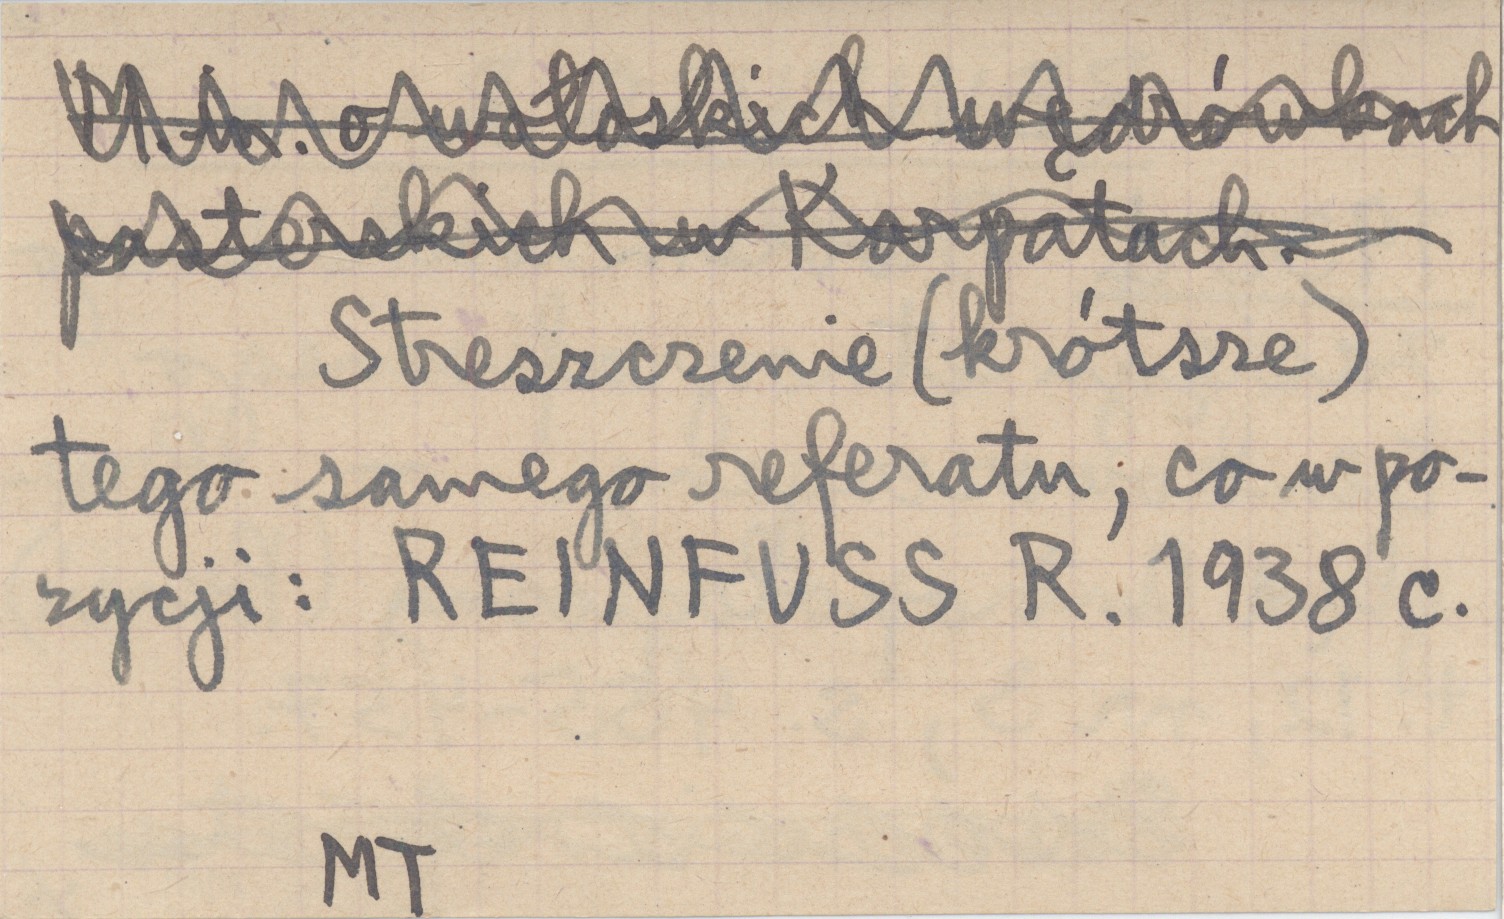 M.in. o wołoskich wędrówkach
pasterskich w Karpatach.
Streszczenie (krótsze)
tego samego referatu, co w po-
zycji: REINFUSS R. 1938 c.
MT